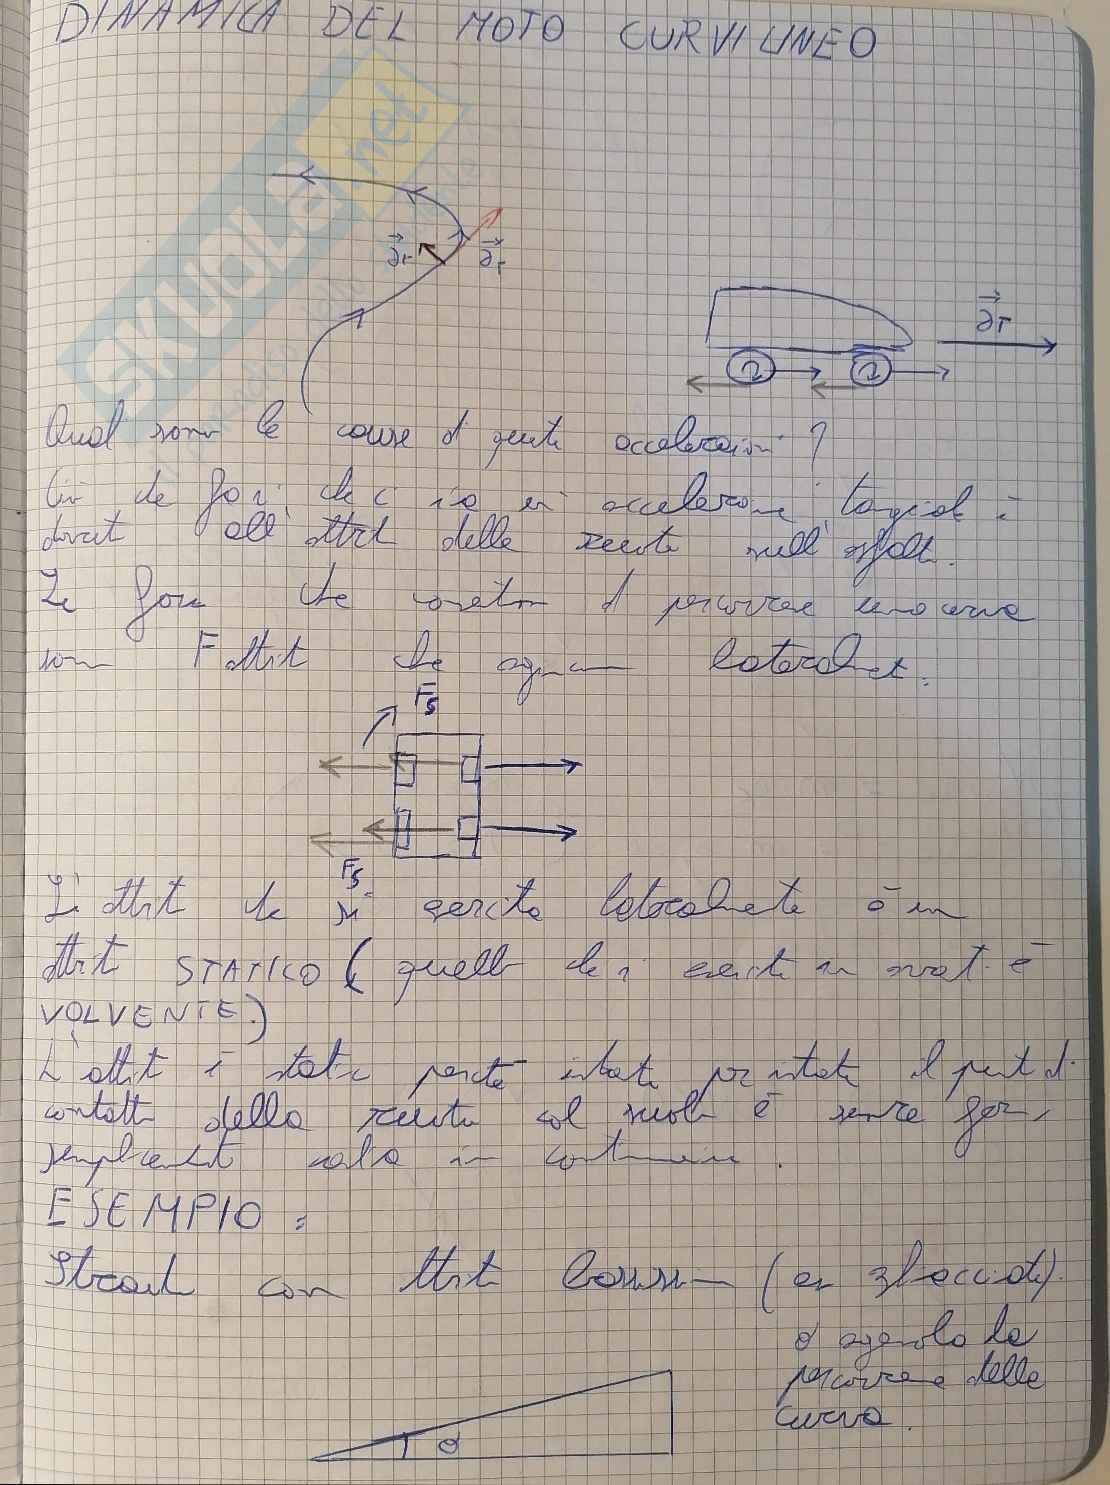 DINAMICA DEL MOTO CURVILINEO
SKUOLA.net
a_r
a_T
a_T
Quali sono le cause di queste accelerazioni?
accelerazione tangenziale è
dovuta all'attrito delle ruote sull'asfalto.
Le forze che consentono di percorrere una curva
sono F attrito che agiscono lateralmente.
F_s
F_s
L'attrito che si esercita lateralmente è un
attrito STATICO (quello che si esercita in avanti è
VOLVENTE.)
L'attrito è statico perché istante per istante il punto di
contatto della ruota col suolo è sempre fermo,
semplicemente cambia in continuazione.
ESEMPIO:
Strada con attrito bassissimo (es ghiacciata).
α agevola la
percorrenza delle
curva.
α